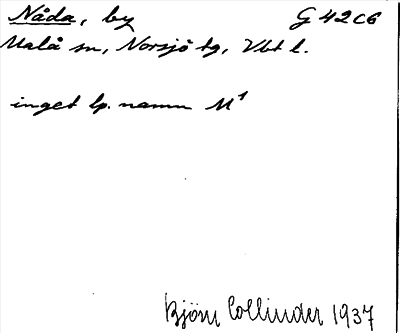 Nåda, by G 42 C6
Malå sn, Norsjö tg, Vbt l.
inget lp. namn M¹
Björn Collinder 1937